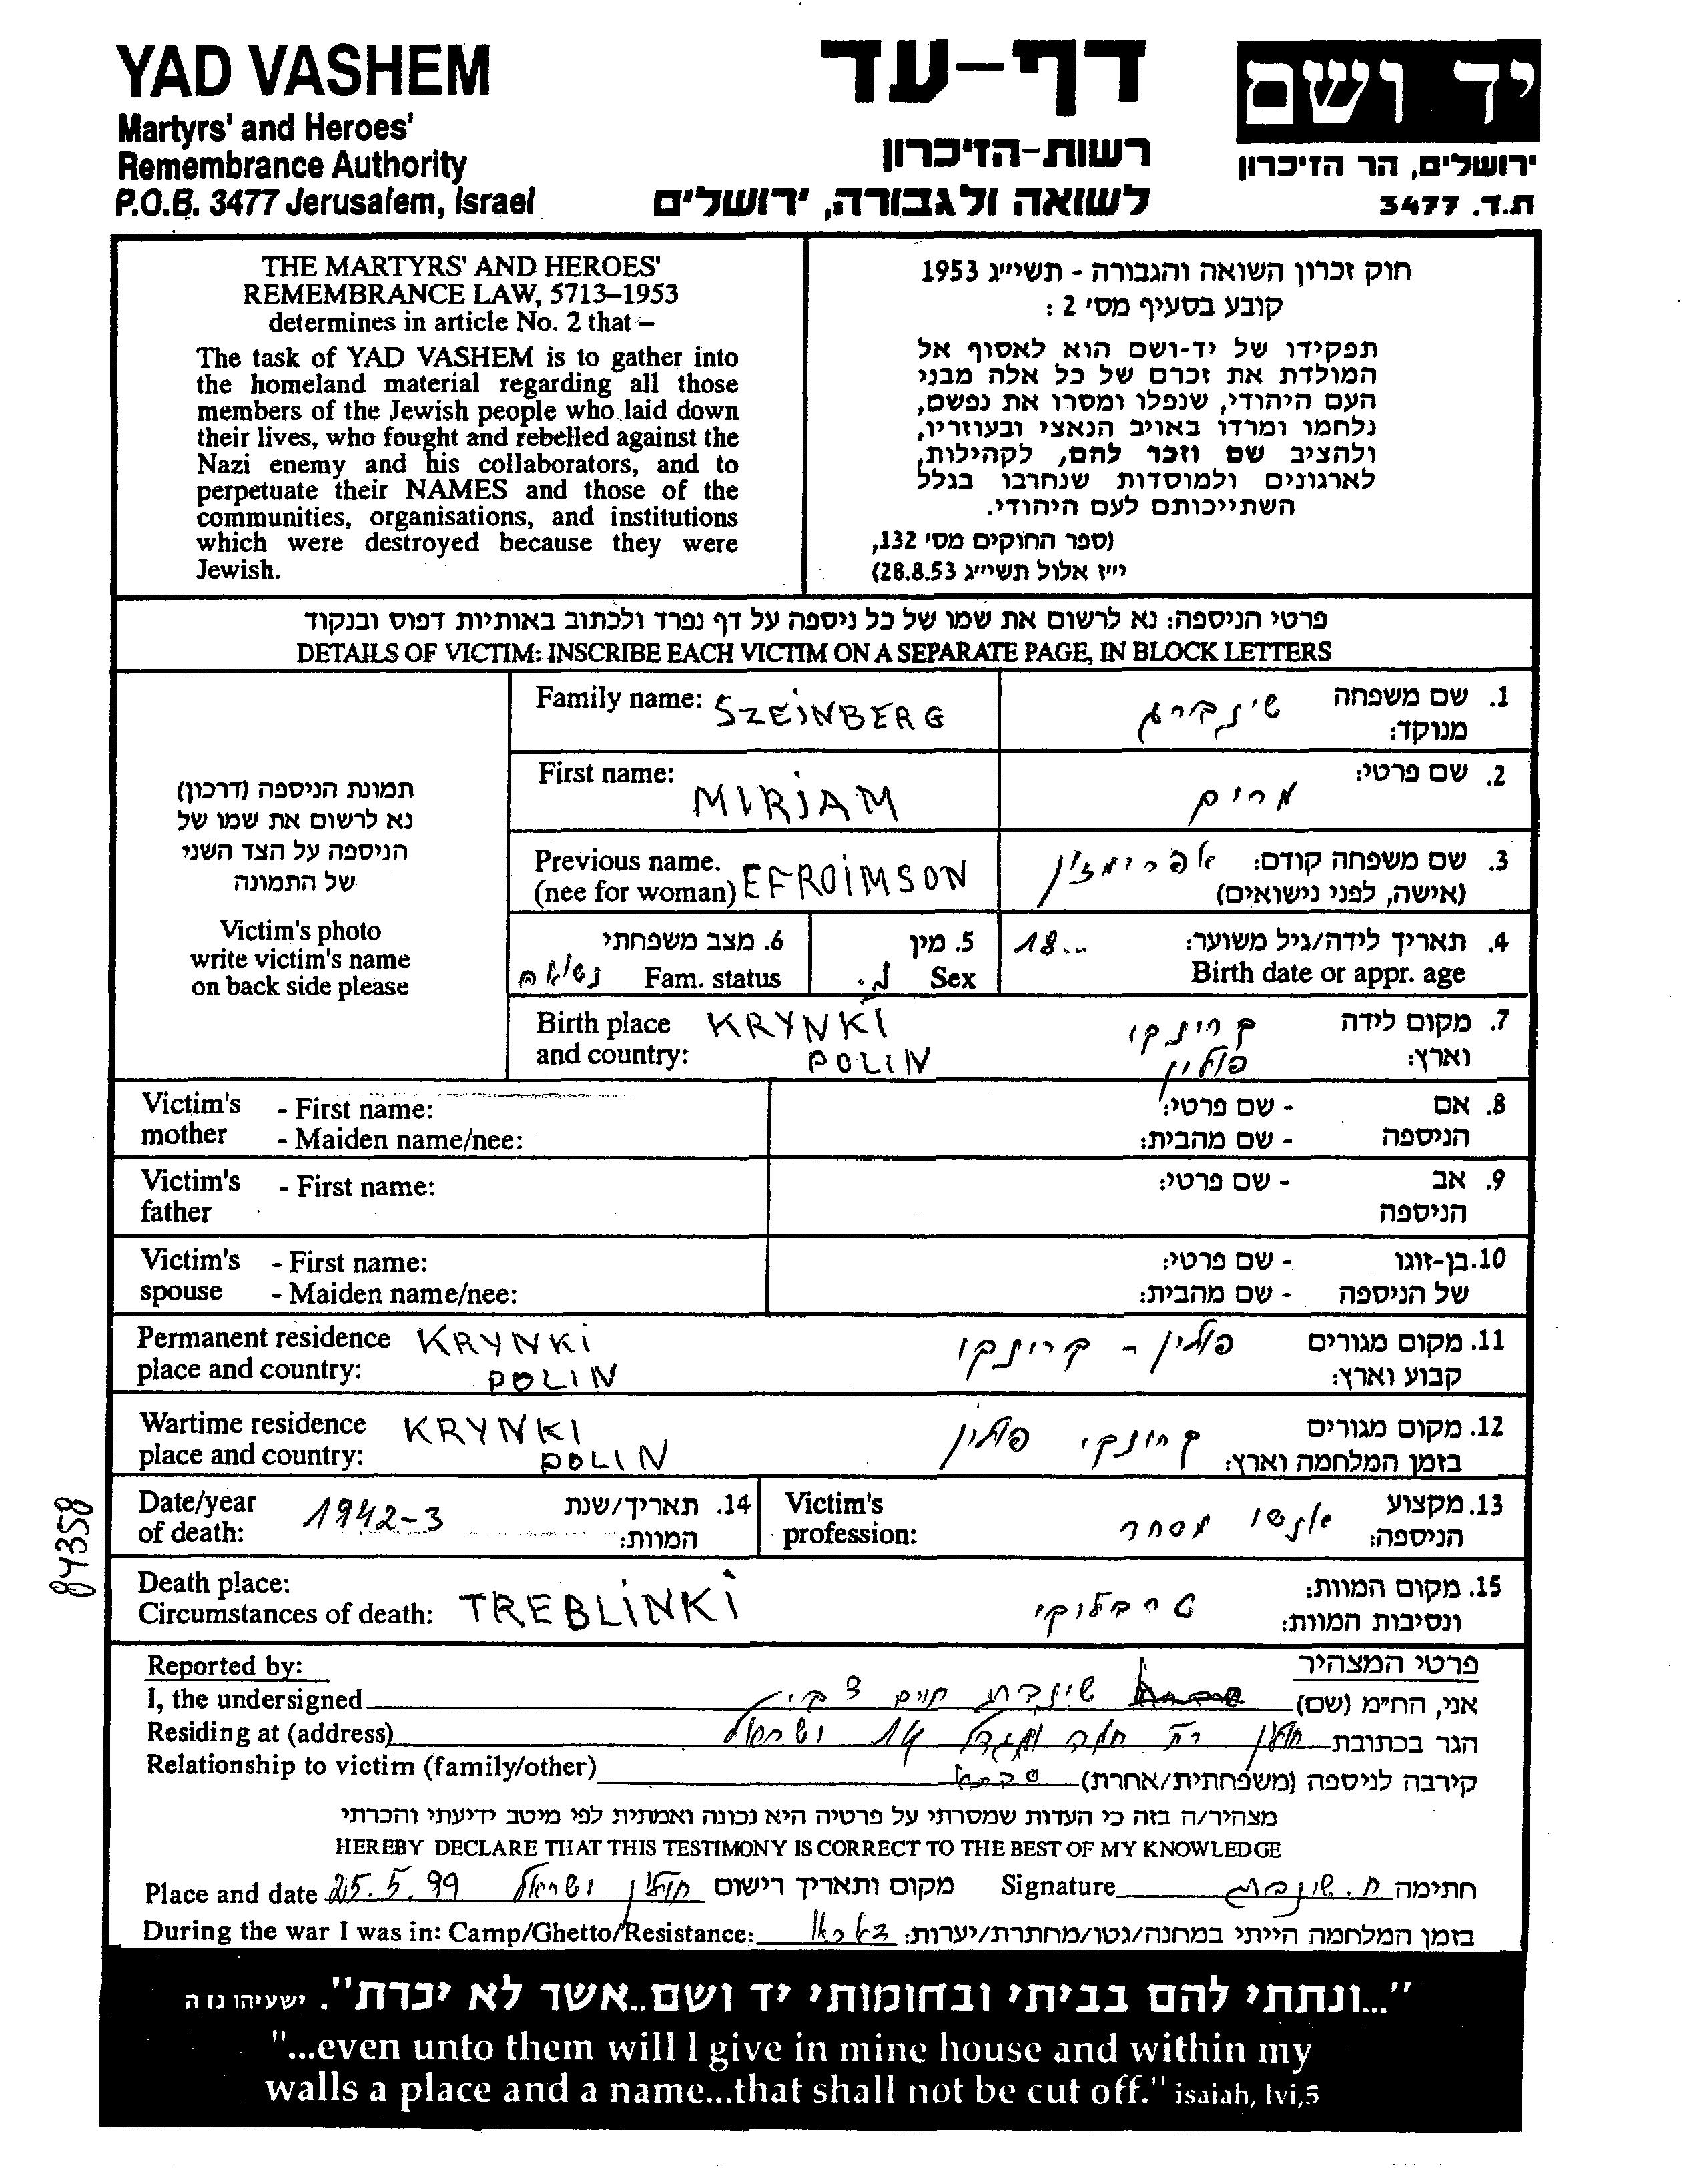 YAD VASHEM
Martyrs' and Heroes'
Remembrance Authority
P.O.B. 3477 Jerusalem, Israel
דף-עד
רשות-הזיכרון
לשואה ולגבורה, ירושלים
יד ושם
ירושלים, הר הזיכרון
ת.ד. 3477
THE MARTYRS' AND HEROES'
REMEMBRANCE LAW, 5713–1953
determines in article No. 2 that –
The task of YAD VASHEM is to gather into
the homeland material regarding all those
members of the Jewish people who laid down
their lives, who fought and rebelled against the
Nazi enemy and his collaborators, and to
perpetuate their NAMES and those of the
communities, organisations, and institutions
which were destroyed because they were
Jewish.
חוק זכרון השואה והגבורה - תשי״ג 1953
קובע בסעיף מס׳ 2 :
תפקידו של יד-ושם הוא לאסוף אל
המולדת את זכרם של כל אלה מבני
העם היהודי, שנפלו ומסרו את נפשם,
נלחמו ומרדו באויב הנאצי ובעוזריו,
ולהציב שם וזכר להם, לקהילות,
לארגונים ולמוסדות שנחרבו בגלל
השתייכותם לעם היהודי.
(ספר החוקים מס׳ 132,
י״ז אלול תשי״ג 28.8.53)
פרטי הניספה: נא לרשום את שמו של כל ניספה על דף נפרד ולכתוב באותיות דפוס ובנקוד
DETAILS OF VICTIM: INSCRIBE EACH VICTIM ON A SEPARATE PAGE, IN BLOCK LETTERS
תמונת הניספה (דרכון)
נא לרשום את שמו של
הניספה על הצד השני
של התמונה
Victim's photo
write victim's name
on back side please
Family name: SZEINBERG
1. שם משפחה מנוקד: שינברג
First name: MIRJAM
2. שם פרטי: מרים
Previous name. (nee for woman) EFROIMSON
3. שם משפחה קודם: (אישה, לפני נישואים)
4. תאריך לידה/גיל משוער: 18...
Birth date or appr. age
5. מין Sex נ.
6. מצב משפחתי Fam. status נשואה
Birth place and country: KRYNKI POLIN
7. מקום לידה וארץ: קרינקי פולין
Victim's mother - First name:
- Maiden name/nee:
8. אם הניספה - שם פרטי:
- שם מהבית:
Victim's father - First name:
9. אב הניספה - שם פרטי:
Victim's spouse - First name:
- Maiden name/nee:
10. בן-זוגו של הניספה - שם פרטי:
- שם מהבית:
Permanent residence place and country: KRYNKI POLIN
11. מקום מגורים קבוע וארץ: פולין - קרינקי
Wartime residence place and country: KRYNKI POLIN
12. מקום מגורים בזמן המלחמה וארץ: קרינקי פולין
Date/year of death: 1942-3
14. תאריך/שנת המוות:
Victim's profession:
13. מקצוע הניספה: אנשי מסחר
Death place:
Circumstances of death: TREBLINKI
15. מקום המוות:
ונסיבות המוות:
84358
Reported by:
פרטי המצהיר
I, the undersigned
אני, הח״מ (שם) שינברג חיים צבי
Residing at (address)
הגר בכתובת חולון רח 14 ישראל
Relationship to victim (family/other)
קירבה לניספה (משפחתית/אחרת) סבתא
מצהיר/ה בזה כי העדות שמסרתי על פרטיה היא נכונה ואמתית לפי מיטב ידיעתי והכרתי
HEREBY DECLARE THAT THIS TESTIMONY IS CORRECT TO THE BEST OF MY KNOWLEDGE
Place and date 25.5.99 חולון ישראל מקום ותאריך רישום
Signature ח. שינברג חתימה
During the war I was in: Camp/Ghetto/Resistance:
בזמן המלחמה הייתי במחנה/גטו/מחתרת/יערות:
"...ונתתי להם בביתי ובחומותי יד ושם..אשר לא יכרת". ישעיהו נו ה
"...even unto them will I give in mine house and within my
walls a place and a name...that shall not be cut off." isaiah, lvi,5